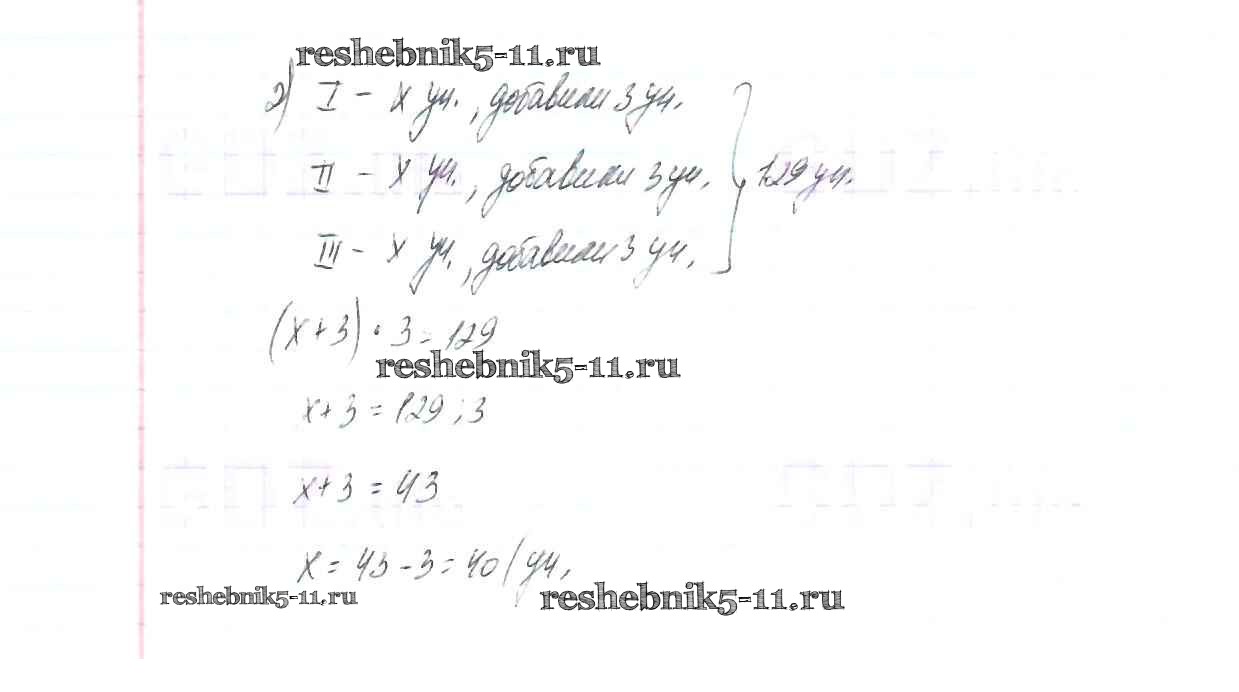 reshebnik5-11.ru
2) I - x уч., добавили 3 уч.
II - x уч., добавили 3 уч.
129 уч.
III - x уч., добавили 3 уч.
(x+3) · 3 = 129
reshebnik5-11.ru
x+3 = 129 : 3
x+3 = 43
x = 43 - 3 = 40 (уч.
reshebnik5-11.ru
reshebnik5-11.ru